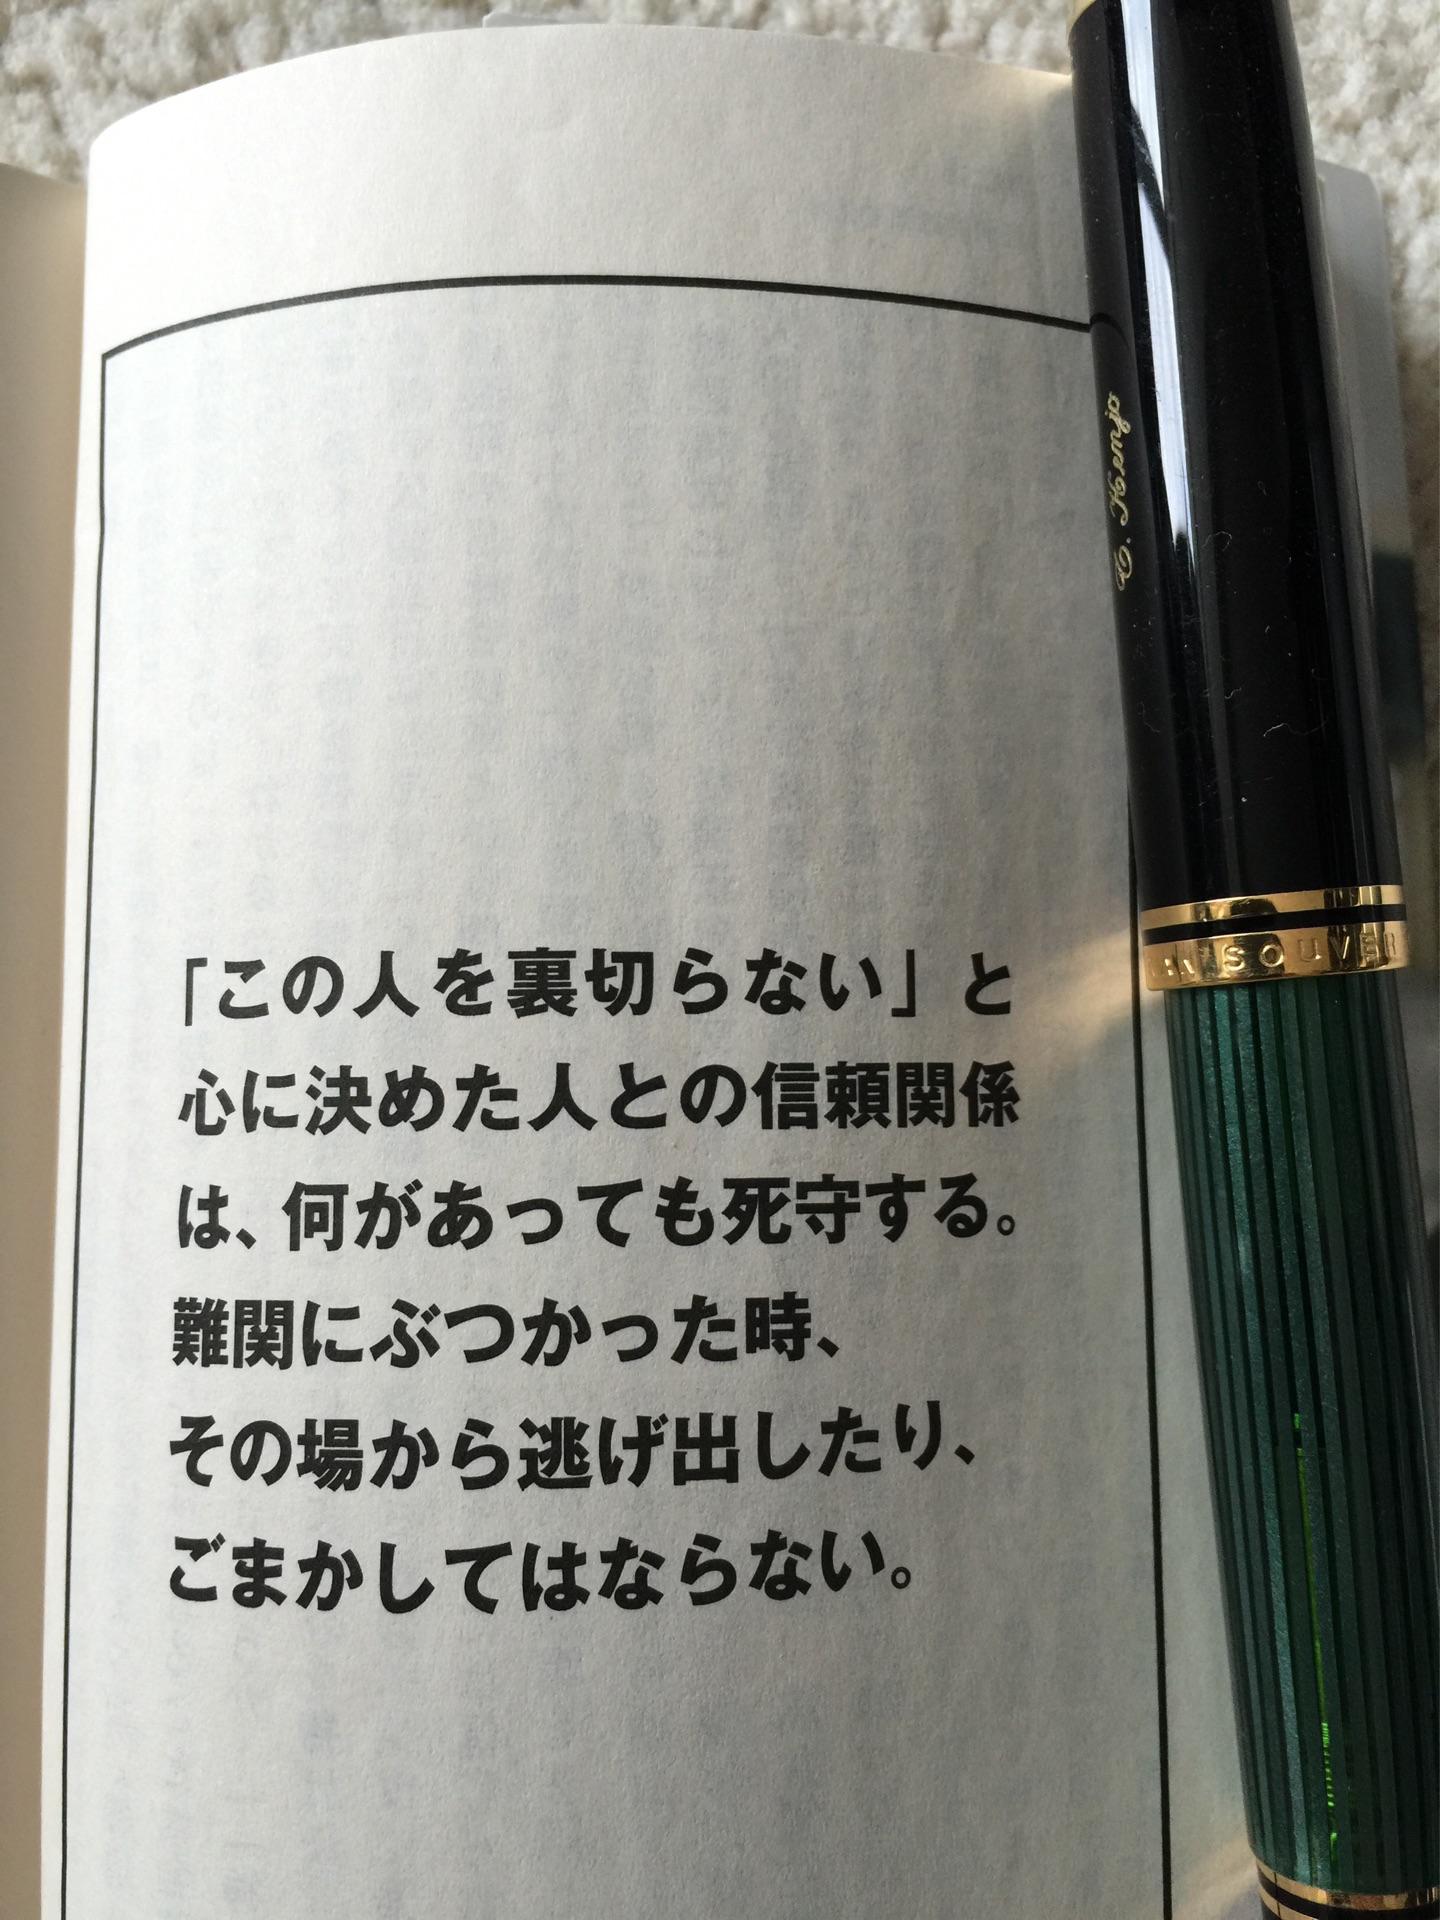 「この人を裏切らない」と
心に決めた人との信頼関係
は、何があっても死守する。
難関にぶつかった時、
その場から逃げ出したり、
ごまかしてはならない。
SOUVER